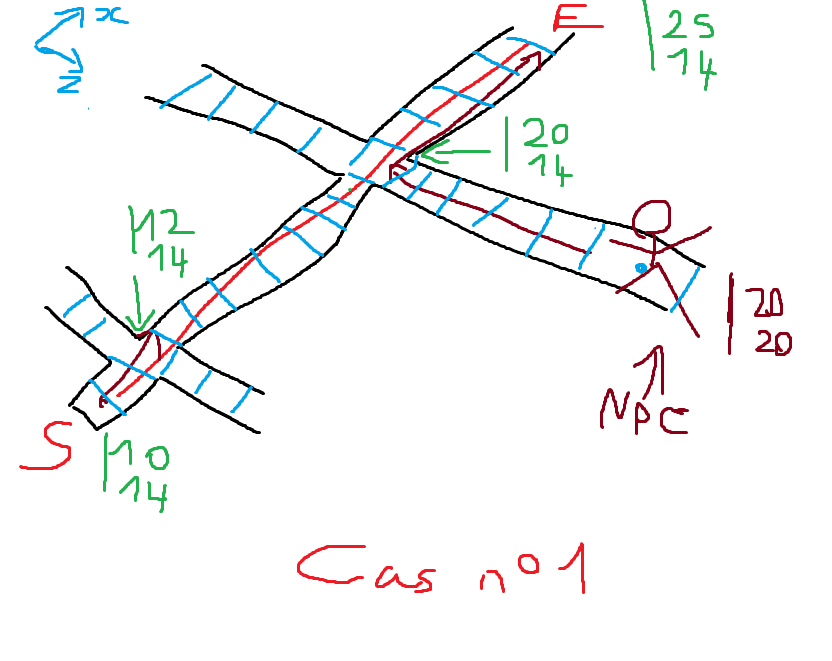 x
z
E
25
14
20
14
12
14
20
20
NPC
S
10
14
Cas n°1